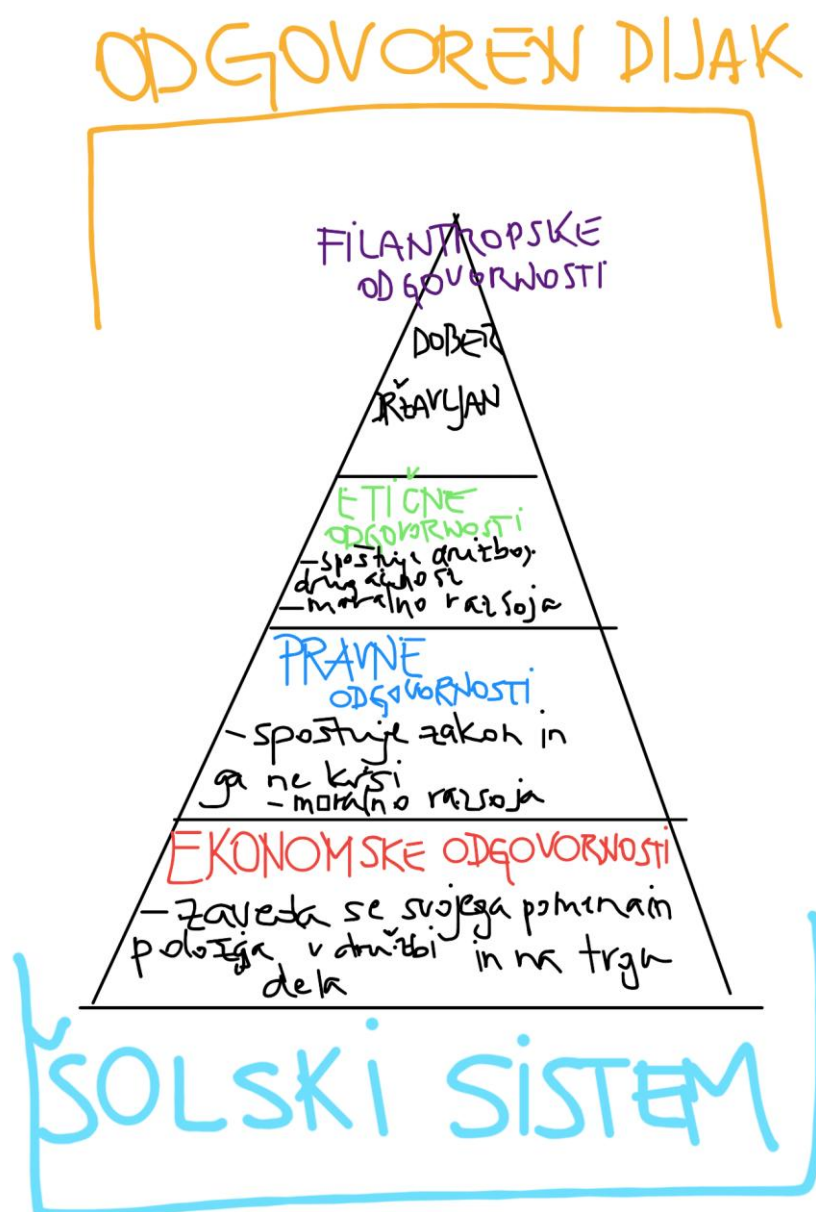 ODGOVOREN DIJAK
FILANTROPSKE
ODGOVORNOSTI
DOBER
DRŽAVLJAN
ETIČNE
ODGOVORNOSTI
- spoštuje družboj
drugačnost
- moralno razsoja
PRAVNE
ODGOVORNOSTI
- spoštuje zakon in
ga ne krši
- moralno razsoja
EKONOMSKE ODGOVORNOSTI
- zaveda se svojega pomena in
položaja v družbi in na trgu
dela
ŠOLSKI SISTEM